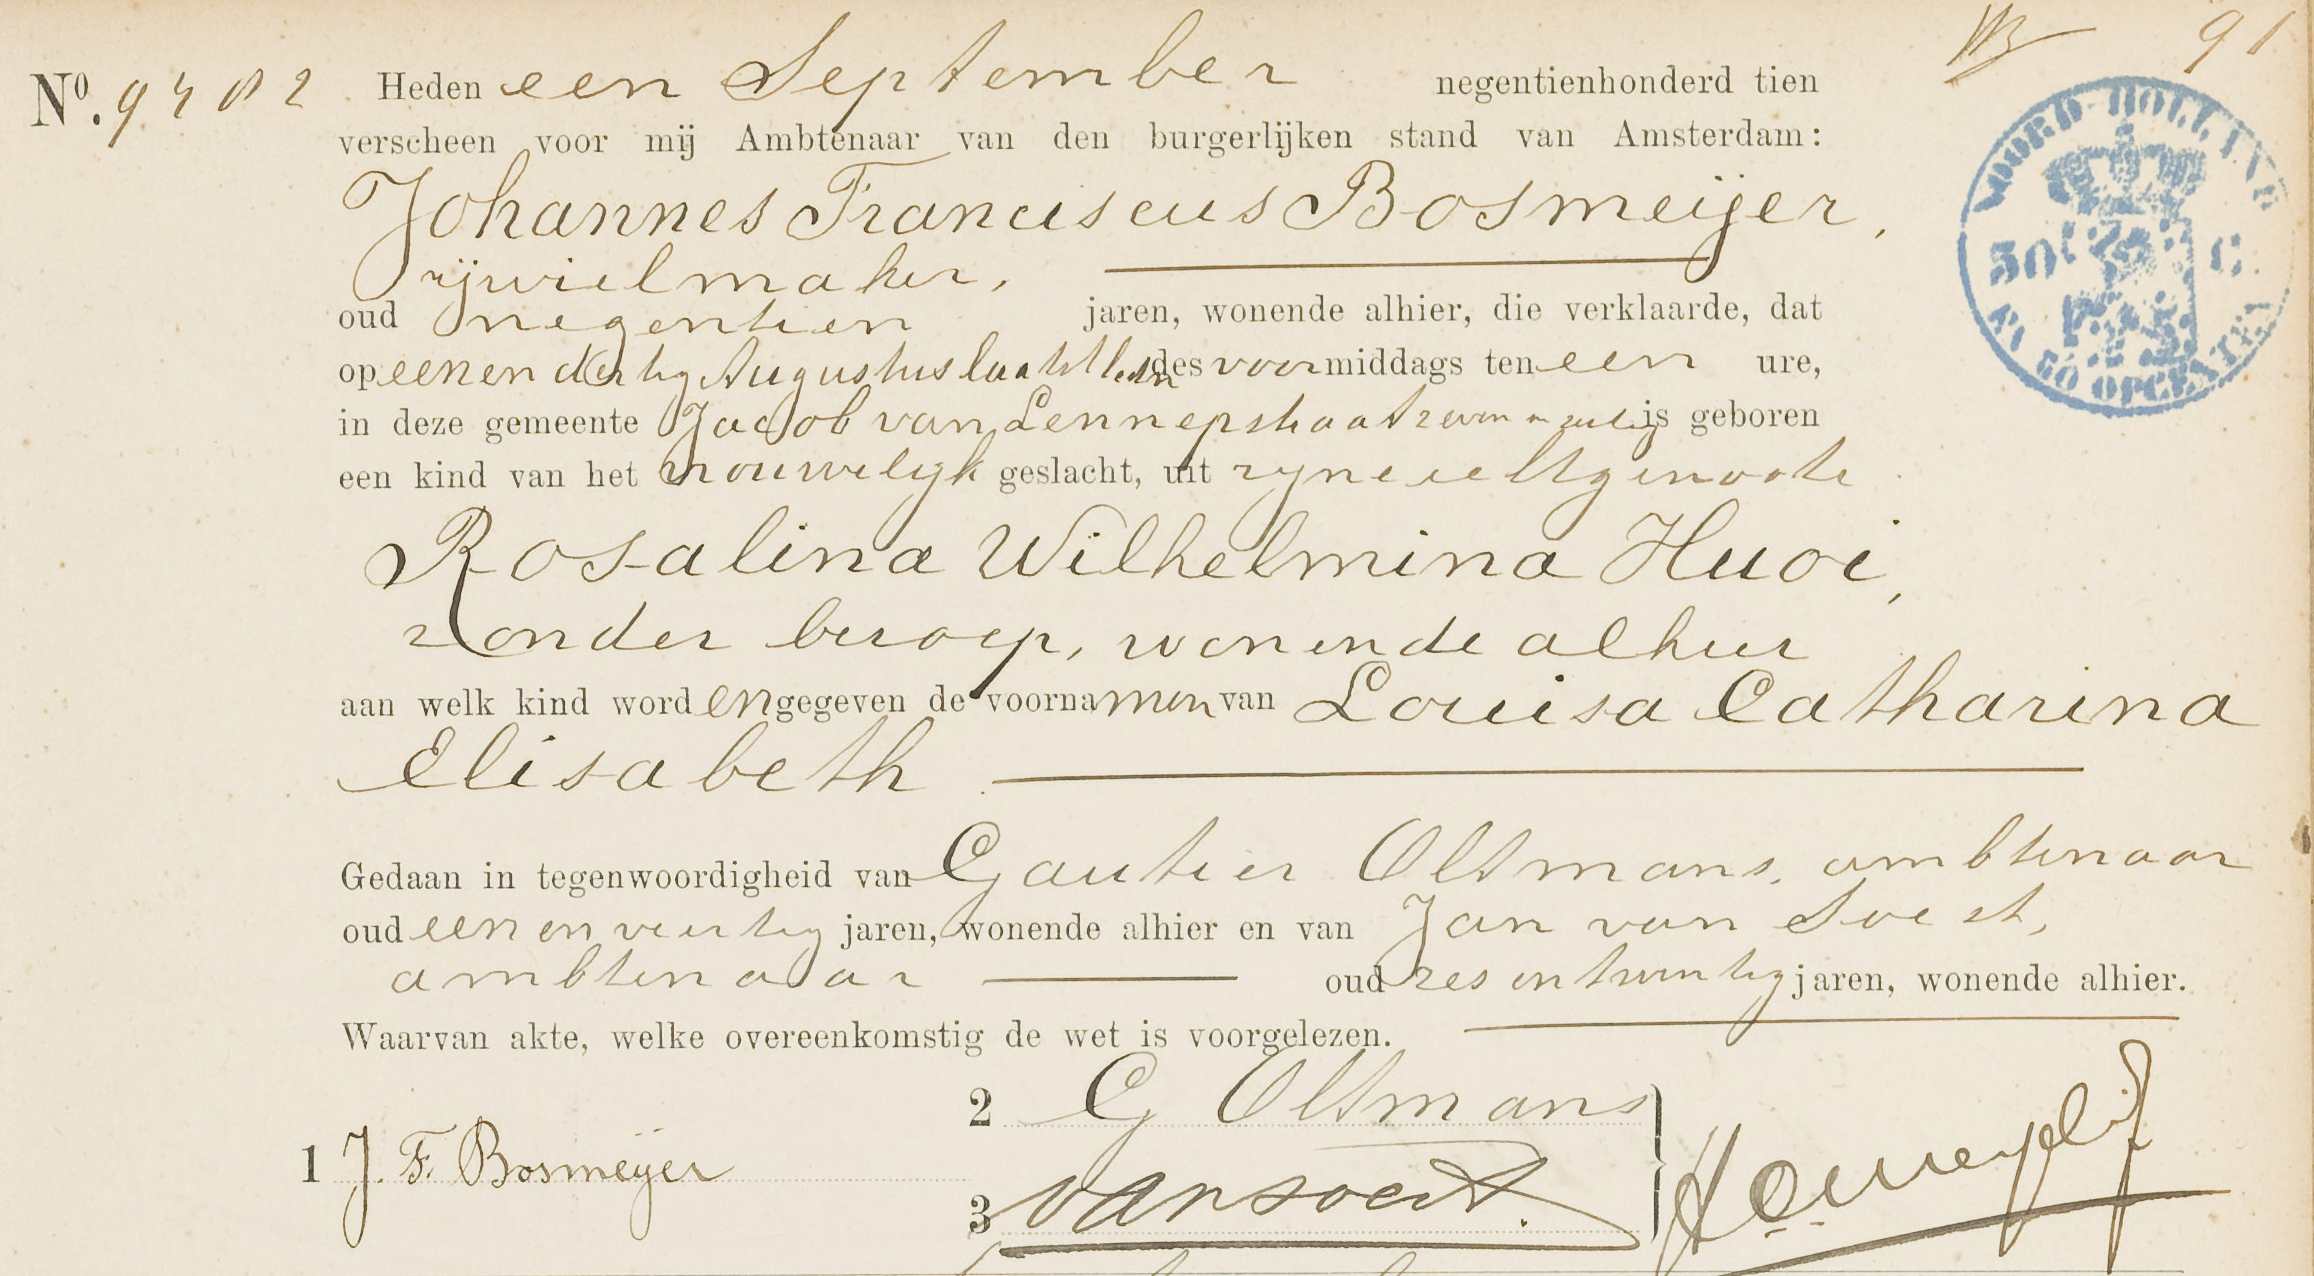 91
No. 9782 Heden een September negentienhonderd tien
verscheen voor mij Ambtenaar van den burgerlijken stand van Amsterdam:
Johannes Franciscus Bosmeijer,
rijwielmaker,
oud negentien jaren, wonende alhier, die verklaarde, dat
op eenendertig Augustus laatstleden des voormiddags ten een ure,
in deze gemeente Jacob van Lennepstraat is geboren
een kind van het vrouwelijk geslacht, uit zijne echtgenoote
Rosalina Wilhelmina Huoi,
zonder beroep, wonende alhier
aan welk kind worden gegeven de voornamen van Louisa Catharina
Elisabeth
Gedaan in tegenwoordigheid van Gautier Oltmans, ambtenaar
oud eenenveertig jaren, wonende alhier en van Jan van Soest,
ambtenaar oud zesentwintig jaren, wonende alhier.
Waarvan akte, welke overeenkomstig de wet is voorgelezen.
2 G Oltmans
1 J. F. Bosmeijer
3 van Soest.
NOORD-HOLLAND
50 C.